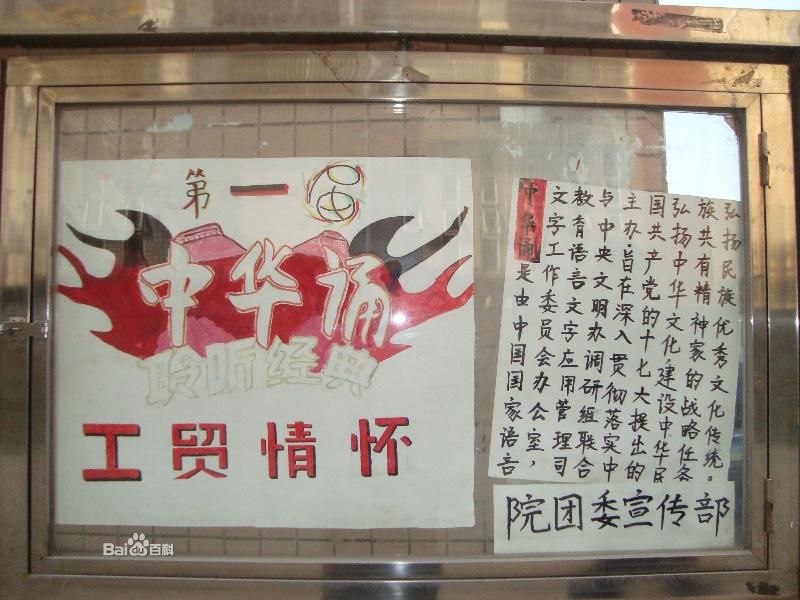 第一届
中华诵
聆听经典
工贸情怀
中华诵是由中国国家语言
文字工作委员会办公室，
教育语言文字应用管理司
与中央文明办调研组联合
主办·旨在深入贯彻落实中
国共产党的十七大提出的
弘扬中华文化建设中华民
族共有精神家的战略任务
弘扬民族优秀文化传统。
院团委宣传部
Bai百科